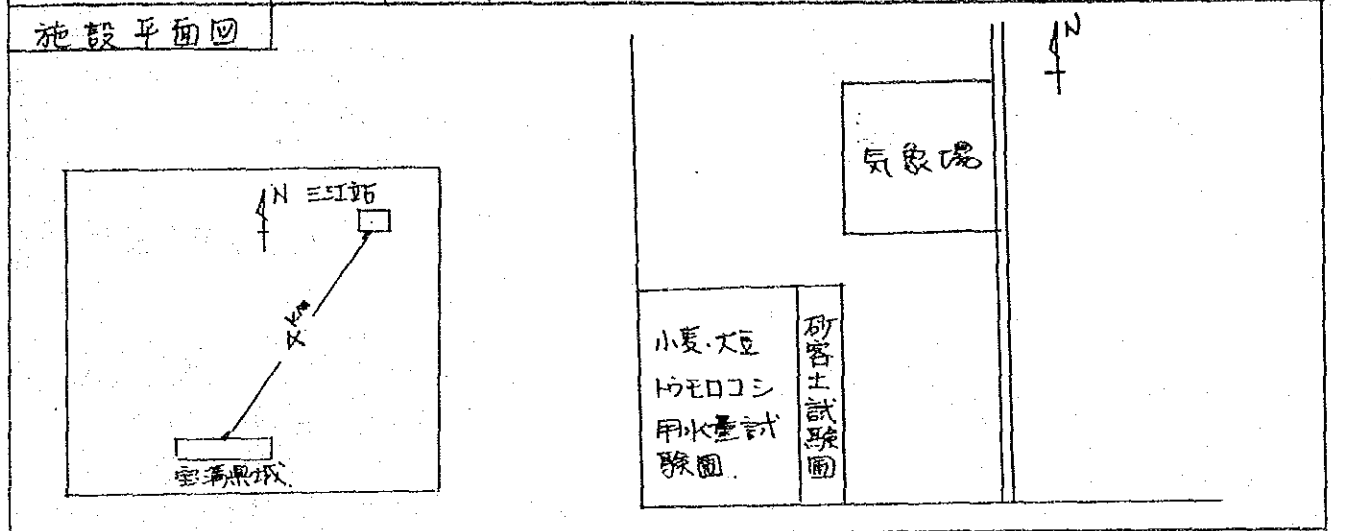 施設平面図
N
三江站
4km
宝清県城
N
気象場
小麦・大豆
トウモロコシ
用水量試
験圃
砂客土試験圃